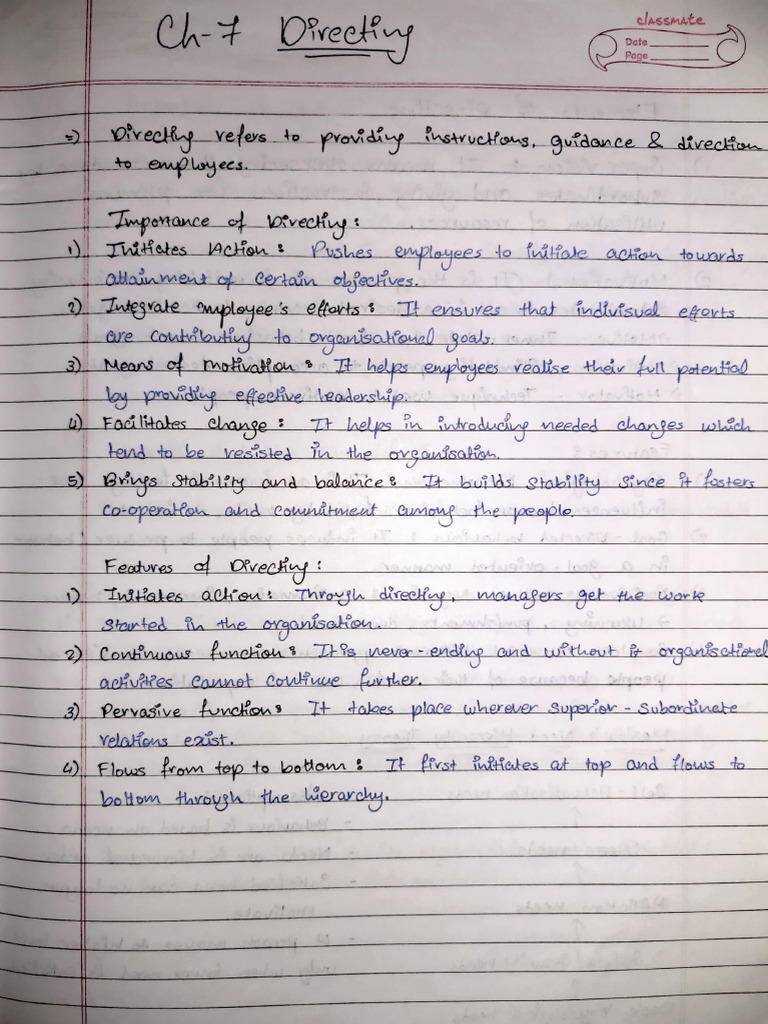 Ch-7 Directing
classmate
Date
Page
=) Directing refers to providing instructions, guidance & direction
to employees.
Importance of Directing:
1) Initiates Action: Pushes employees to initiate action towards
attainment of certain objectives.
2) Integrate employee's efforts: It ensures that indivisual efforts
are contributing to organisational goals.
3) Means of motivation: It helps employees realise their full potential
by providing effective leadership.
4) Facilitates change: It helps in introducing needed changes which
tend to be resisted in the organisation.
5) Brings stability and balance: It builds stability since it fosters
co-operation and commitment among the people.
Features of Directing:
1) Initiates action: Through directing, managers get the work
started in the organisation.
2) Continuous function: It is never-ending and without it organisational
activities cannot continue further.
3) Pervasive function: It takes place wherever superior-subordinate
relations exist.
4) Flows from top to bottom: It first initiates at top and flows to
bottom through the hierarchy.